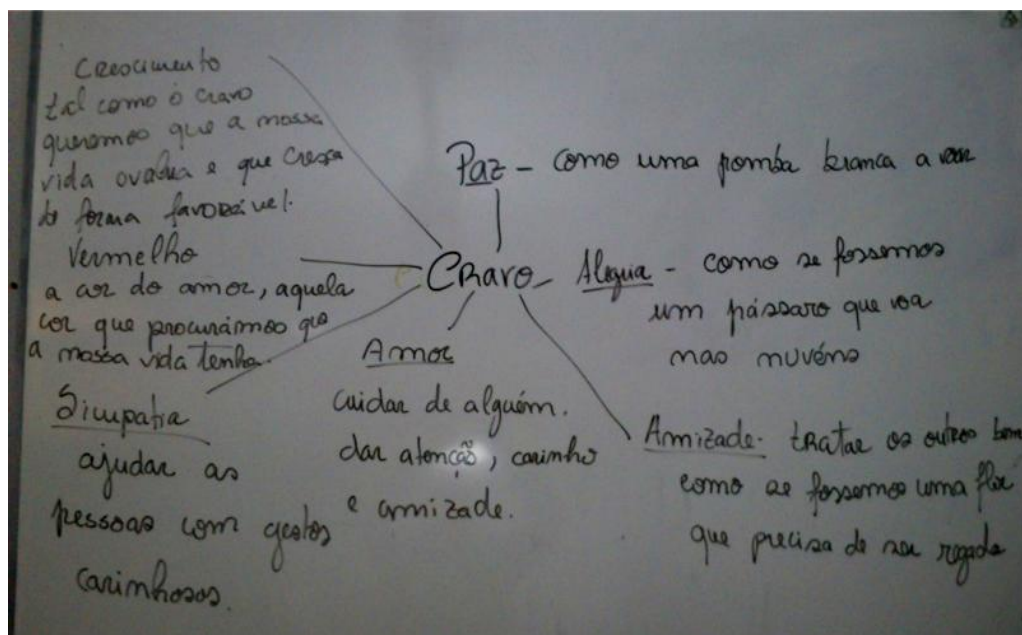 Crescimento
tal como o cravo
queremos que a nossa
vida e que cresça
de forma favorável.
Vermelho
a cor do amor, aquela
cor que procurámos que
a nossa vida tenha.
Simpatia
ajudar as
pessoas com gestos
carinhosos.
Paz - como uma pomba branca a voar
Cravo
Alegria - como se fossemos
um pássaro que voa
nas nuvéns
Amor
cuidar de alguém.
dar atenção, carinho
e amizade.
Amizade - tratar os outros bem
como se fossemos uma flor
que precisa de ser regada